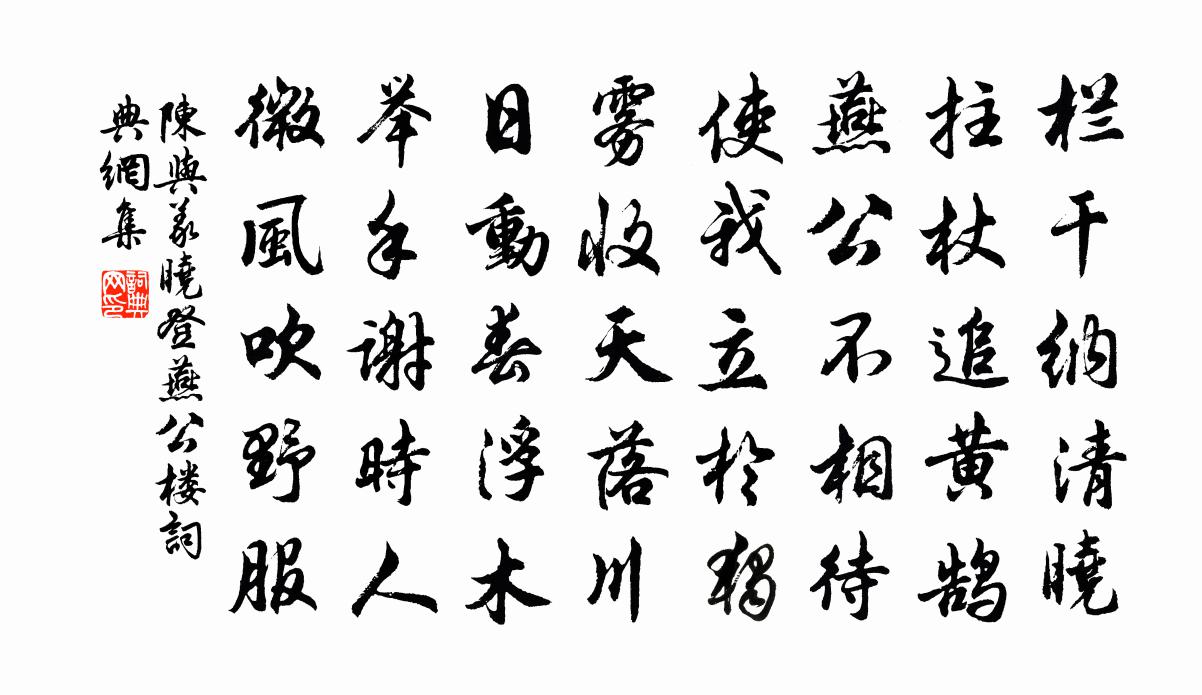 栏干纳清曉
拄杖追黄鹄
燕公不相待
使我立於独
雾收天落川
日動春浮木
举手謝時人
微風吹野服
陳與義曉登燕公楼詞
典網集
詞典
网印